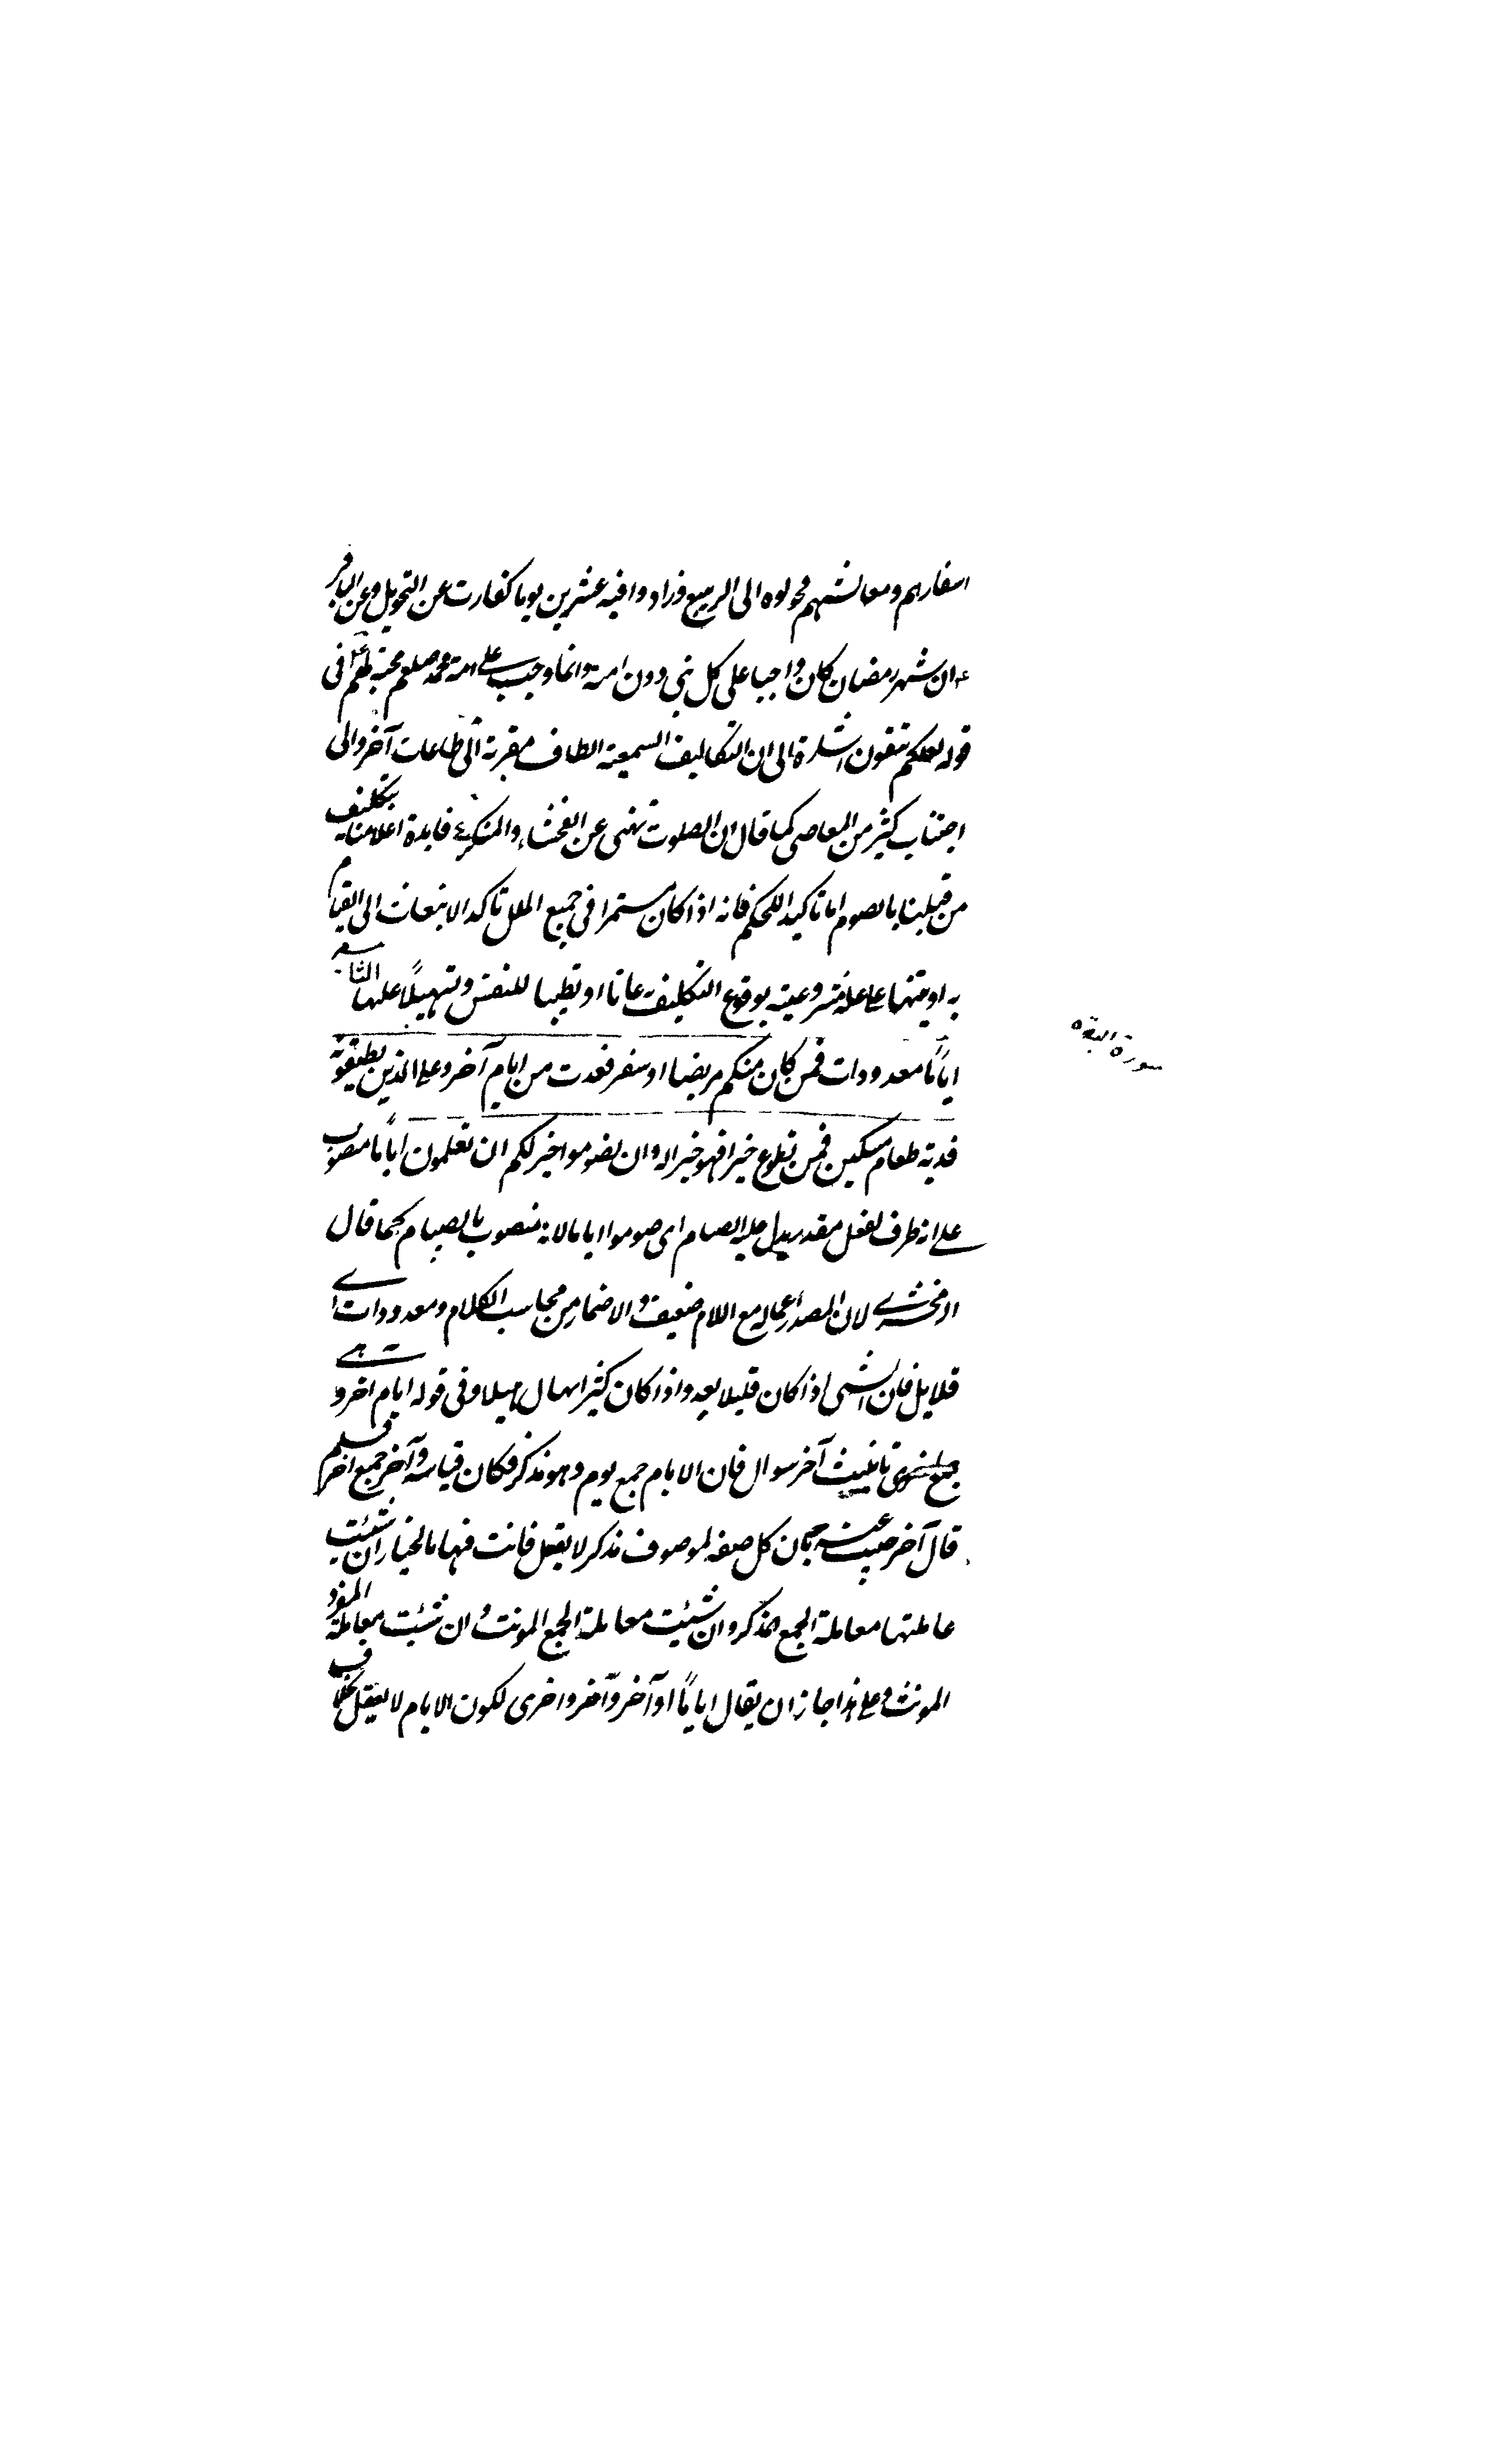 اسفارهم ومعائشهم فحولوه الى الربيع وزادوا فيه عشرين يوما كفارت عن التحويل وعن الباقر
ع ان شهر رمضان كان واجبا على كل نبى دون امته وانما وجب على امة محمد صلعم محبة لهم فى
قوله لعلكم تتقون اشارة الى ان التكاليف السمعية الطاف مقربة الى طاعات آخر والى
اجتناب كثير من المعاصى كما قال ان الصلوت تنهى عن الفحشاء والمنكر فايدة اعلامنا بتكليف
من قبلنا بالصوم اما تاكيد الحكم فانه اذا كان مستمرا فى جميع الملل تاكد الانبعاث الى القيام
به او تنبيها على علة مشروعيته بوقوع التكليف عاما او تطييبا للنفس وتسهيلاً عليها
اياماً معدودات فمن كان منكم مريضا او سفر فعدت من ايام آخر وعلى الذين يطيقونه
فدية طعام مسكين فمن تطوع خيرا فهو خير له وان تصوموا خير لكم ان تعلمون اياماً منصوب
على انه ظرف لفعل مقدر يدل عليه الصيام اى صوموا اياما لانه منصوب بالصيام كما قال
الزمخشرى لان المصدر اعماله مع اللام ضعيف والاضمار من محاسب الكلام ومعدودات اى
قلايل فان الشى اذا كان قليلا يعد واذا كان كثيرا يهال هيلا وفى قوله ايام اخر و
تانيث آخر سوال فان الايام جمع يوم وهو مذكر فكان قياسه وآخر جمع اخر فلم
قال آخر اجيب عنه بان كل صفه لموصوف مذكر لا يعقل فانت فيها بالخيار ان شئت
عاملتها معاملة الجمع المذكر وان شئت معاملة الجمع المونث وان شئت معاملة المفرد
المونث وعلى هذا جاز ان يقال اياماً اوآخر وآخر واخرى لكون الايام لا يعقل بخلاف
سورة البقره